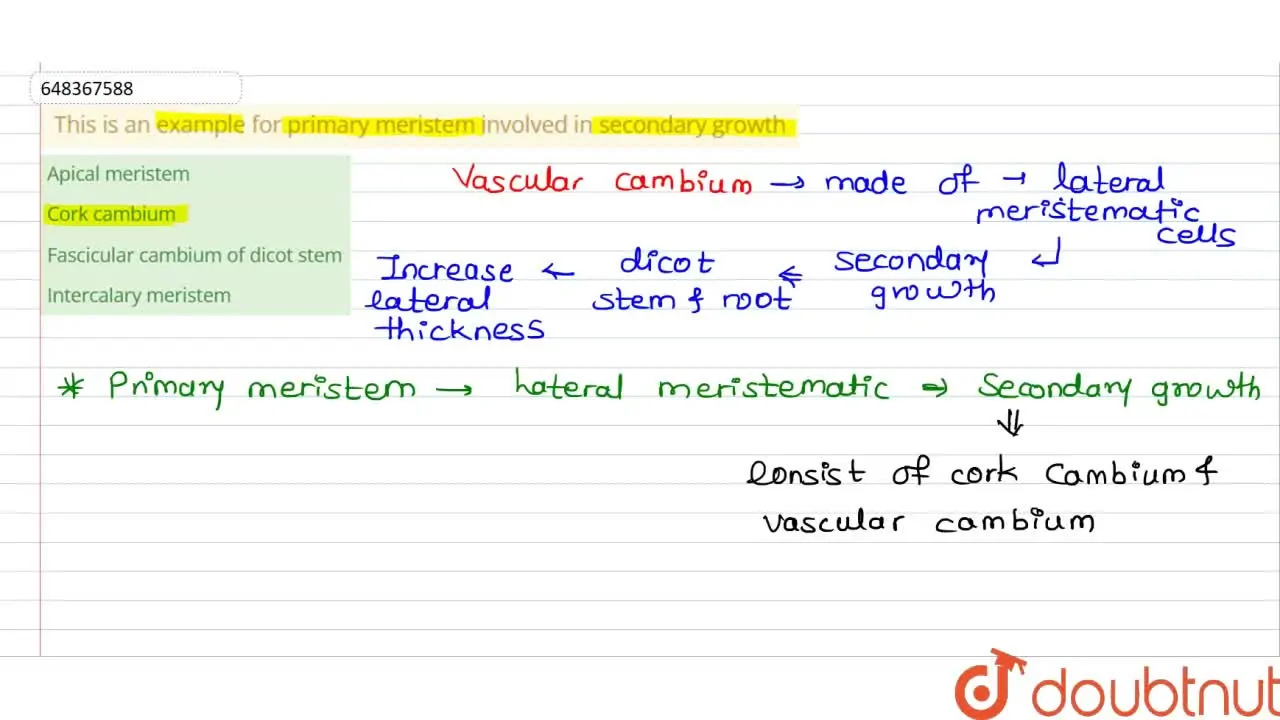 648367588
This is an example for primary meristem involved in secondary growth
Apical meristem
Cork cambium
Fascicular cambium of dicot stem
Intercalary meristem
Vascular cambium → made of → lateral
meristematic
cells
secondary
growth
dicot
stem & root
Increase
lateral
thickness
* Primary meristem → Lateral meristematic → Secondary growth
Consist of cork Cambium &
vascular cambium
doubtnut